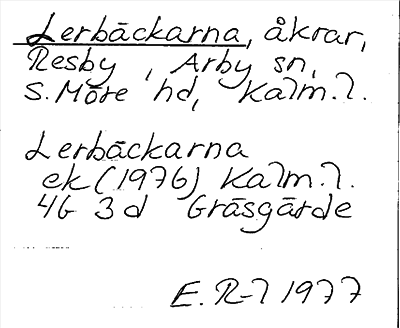 Lerbäckarna, åkrar,
Resby, Arby sn,
S. Möre hd, Kalm. l.
Lerbäckarna
ek (1976) Kalm. l.
4G 3d Gräsgärde
E. R-l 1977